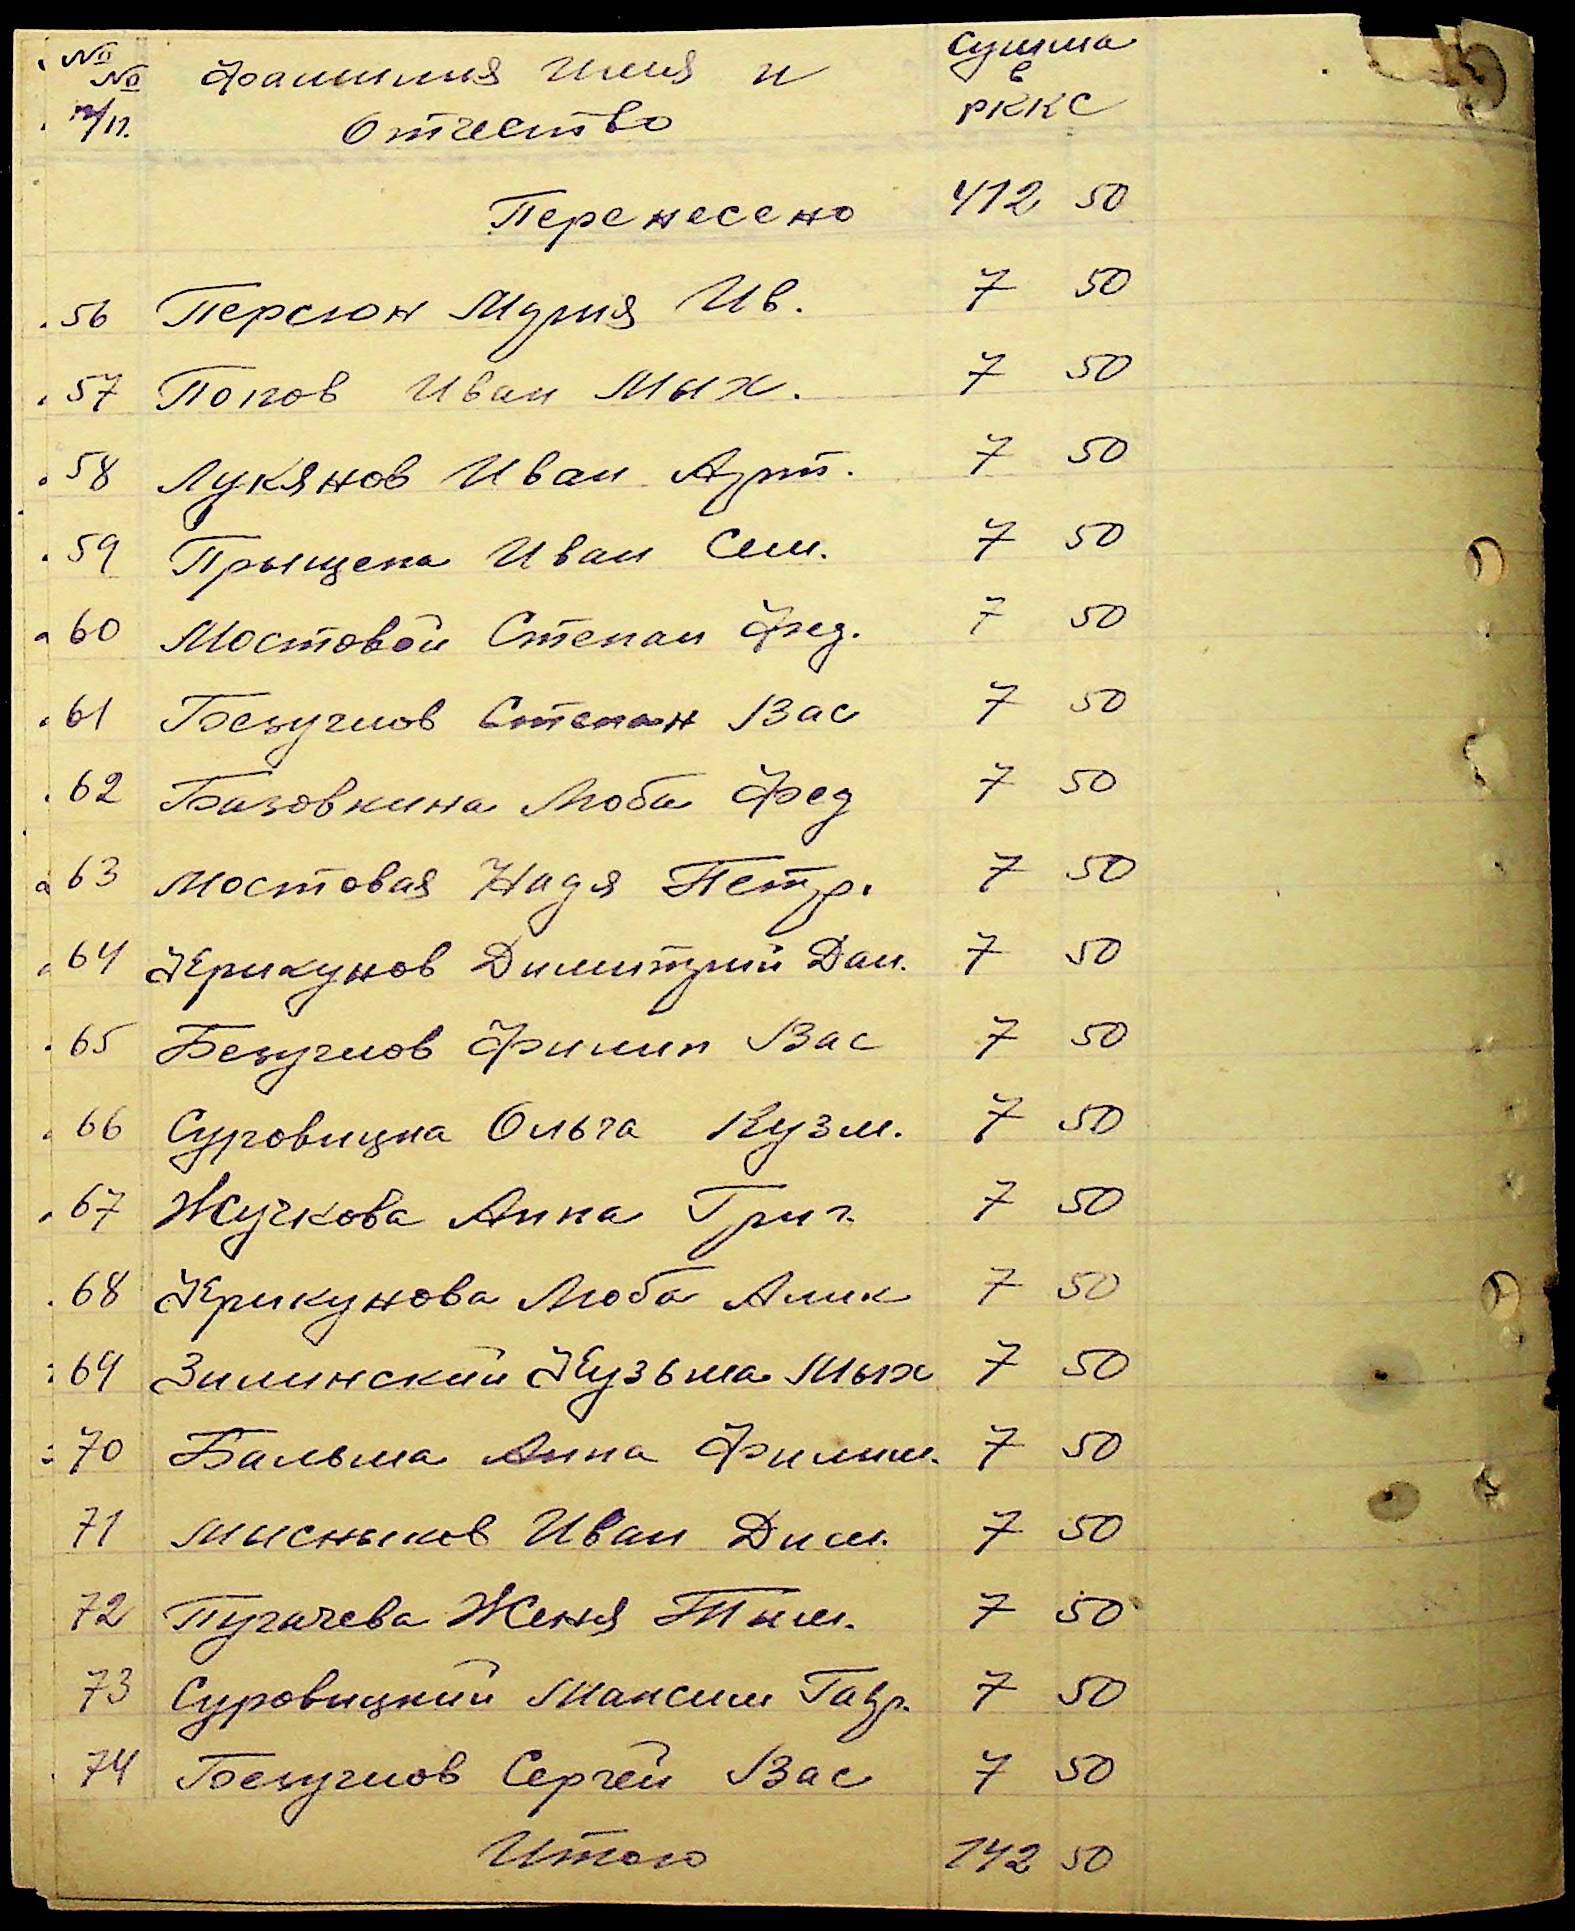 № № п/п. Фамилия Имя и Отчество Сумма в РККС
Перенесено 412 50
56 Персюн Мария Ив. 7 50
57 Попов Иван Мых. 7 50
58 Лукянов Иван Арт. 7 50
59 Прыщепа Иван Сем. 7 50
60 Мостовой Степан Фед. 7 50
61 Безуглов Степан Вас 7 50
62 Базовкина Люба Фед 7 50
63 Мостовая Надя Петр. 7 50
64 Крикунов Димитрий Дан. 7 50
65 Безуглов Филип Вас 7 50
66 Суровицка Ольга Кузм. 7 50
67 Жучкова Анна Григ. 7 50
68 Крикунова Люба Алик 7 50
69 Зилинский Кузьма Мых 7 50
70 Бальма Анна Филим. 7 50
71 Мысныков Иван Дим. 7 50
72 Пугачева Женя Тим. 7 50
73 Суровицкий Максим Гавр. 7 50
74 Безуглов Сергей Вас 7 50
Итого 142 50